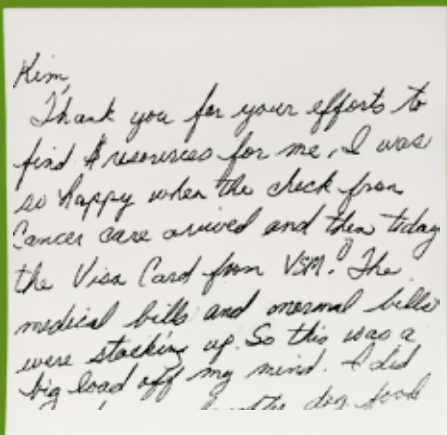 Kim,
Thank you for your efforts to
find $ resources for me, I was
so happy when the check from
Cancer care arrived and then today
the Visa Card from VSM! The
medical bills and normal bills
were stacking up. So this was a
big load off my mind. I did
dog food